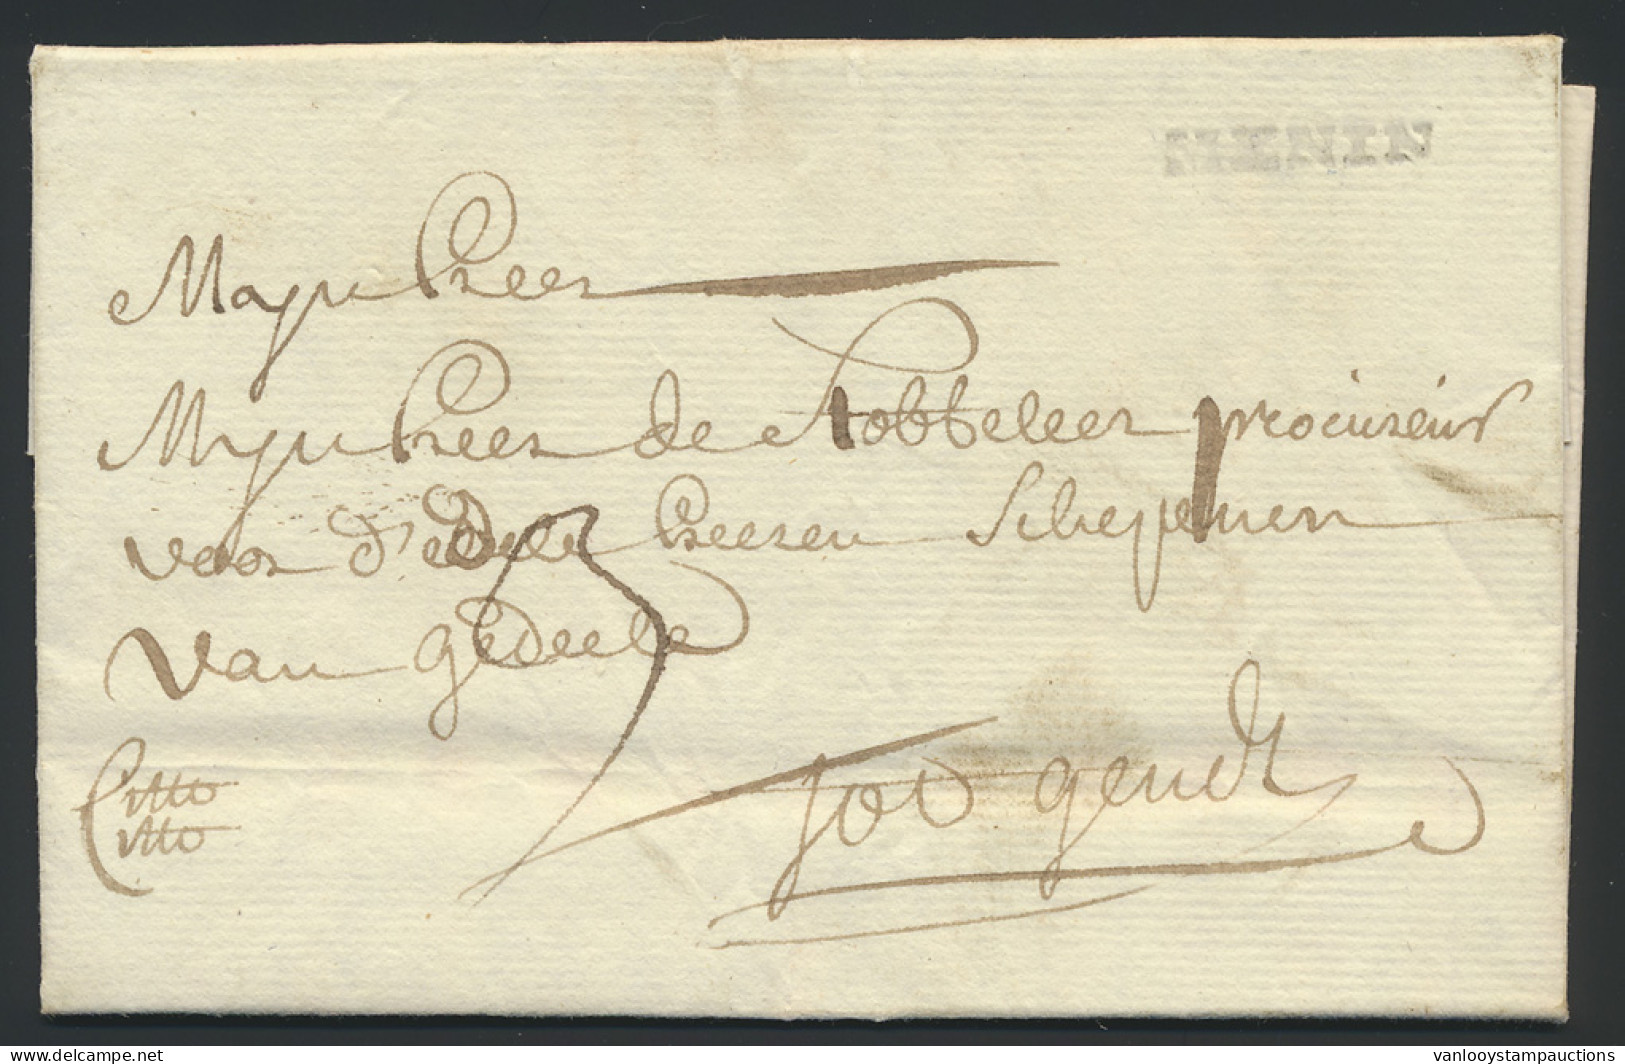 MENIN
Mynheer
Mynheer de Kobbeleer procureur
voor d'edele heeren Schepenen
van gedeele
3
Citto
Citto
tot gendt
Delcampe.net
vanlooystampauctions